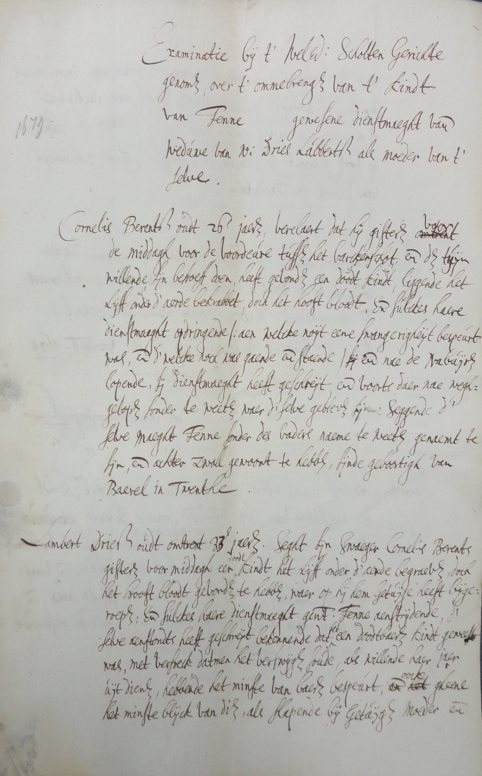 Examinatie bij t' Weled: Scholten Gerichte
genomen, over t' ommebrengen van t' Kindt
1679
van Fenne gewesene dienstmaeght van
Weduwe van wi: Dries Labberts als moeder van t'
selve.
Cornelis Berents oudt 26 jaeren, verclaert dat hij gisteren voor
de middagh voor de voordeure tusschen het en de
willende sijn behoef doen, heeft gevonden een doodt Kindt, leggende het
Lijff onder d'aerde bekrabbet, doch het hooft bloodt, en sulckes haere
dienstmaeght opdringende /: aen welcke noijt eene swangerigheijt bespeurt
was, en d'welcke noch was gaende en staende / en nae de Nabuijren
lopende, sij dienstmaeght heeft geschreijt en voorts daer nae wegh-
gelopen sonder te weten waer d'selve gebleven sij: Seggende d'
selve maeght Fenne sonder des vaders naeme te weten genaemt te
sijn, en achter Zwoll gewoont te hebben, sijnde geboortigh van
in Twenthe.
Lambert Dries oudt omtrent 33 jaeren. Seght sijn Swaeger Cornelis Berents
gisteren voor middagh een Kindt het Lijff onder d'aerde begraven, doch
het hooft bloodt gevonden te hebben, waer op hij hem Getuijge heeft bijge-
ropen; en sulckes haere dienstmaeght Fenne aenstijdende, d'
selve aenstonts heeft geschreijt bekennende dat een dootbaer Kindt geweest
was, met versoeck datmen het verswijgen soude, als willende haer jaer
uijt dienen, hebbende het minste van haer bespeurt, oock geene
het minste blijck van dien, als slapende bij Getuijgen Moeder en